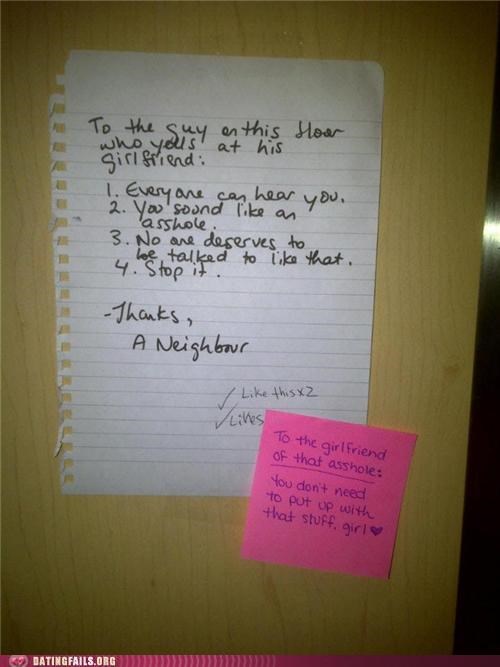 To the guy on this floor
who yells at his
girlfriend:
1. Everyone can hear you.
2. You sound like an
asshole.
3. No one deserves to
be talked to like that.
4. Stop it.
-Thanks,
A Neighbour
✓ Like this x2
✓ Likes
To the girlfriend
of that asshole:
You don't need
to put up with
that stuff, girl ♥
DATINGFAILS.ORG